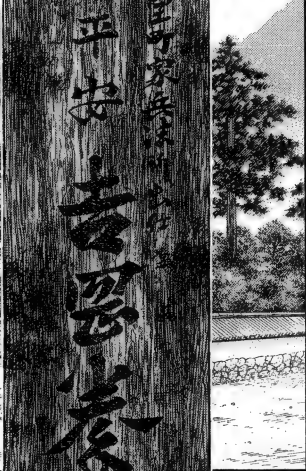 室町家兵法所出仕
平安吉岡